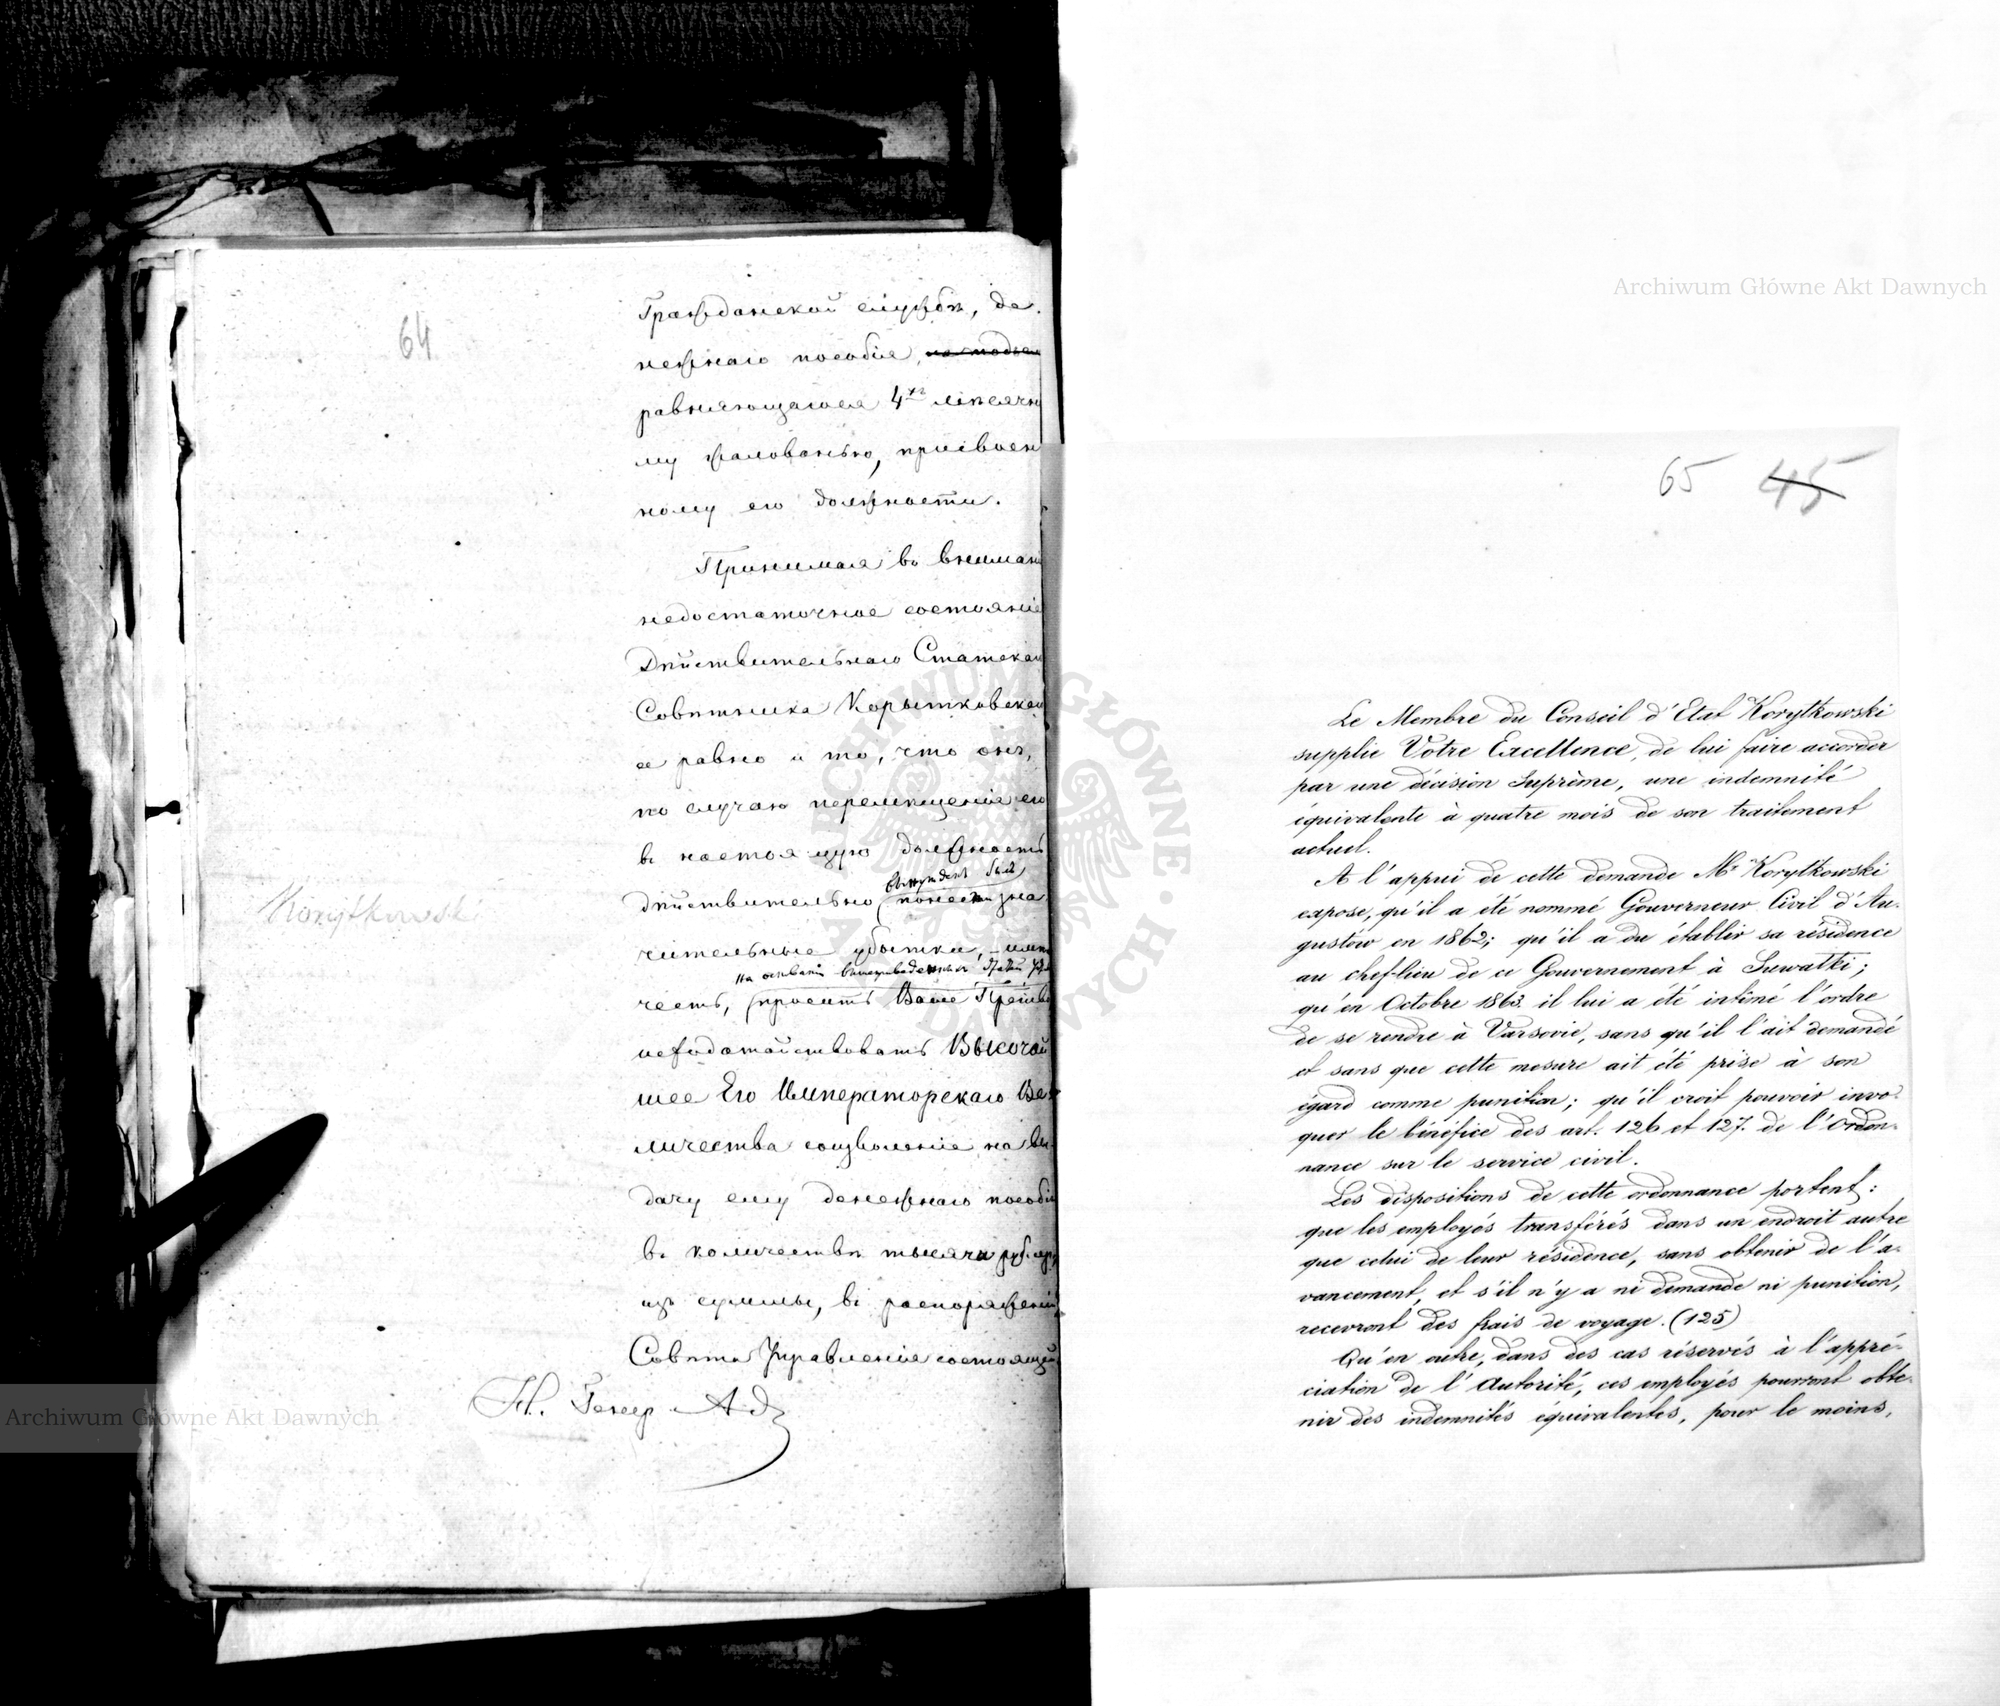 64
Гражданской службѣ, де-
нежнаго пособія,
равняющагося 4хъ мѣсячно
му жалованью, присвоен
ному его должности.
Принимая во внимані
недостаточное состояніе
Дѣйствительнаго Статскаг
Совѣтника Корытковскаг
а равно и то, что онъ,
по случаю перемѣщенія его
въ настоящую должность
вынужденъ былъ
дѣйствительно понести зна
чительные убытки, имѣю
на основаніи вышеприведенныхъ
честь, просить Ваше Прево
исходатайствовать Высочай
шее Его Императорскаго Ве-
личества соизволеніе на вы-
дачу ему денежнаго пособія
въ количествѣ тысячи рублей
изъ суммы, въ распоряженіи
Совѣта Управленія состоящей
Korytkowski
65 45
Le Membre du Conseil d'Etat Korytkowski
supplie Votre Excellence, de lui faire accorder
par une décision Suprème, une indemnité
équivalente à quatre mois de son traitement
actuel.
A l'appui de cette demande Mr Korytkowski
expose, qu'il a été nommé Gouverneur Civil d'Au-
gustów en 1862; qu'il a du établir sa résidence
au chef-lieu de ce Gouvernement à Suwałki;
qu'en Octobre 1863. il lui a été intimé l'ordre
de se rendre à Varsovie, sans qu'il l'ait demandé
et sans que cette mesure ait été prise à son
égard comme punition; qu'il croit pouvoir invo-
quer le bénéfice des art. 126 et 127. de l'Ordon-
nance sur le service civil.
Les dispositions de cette ordonnance portent:
que les employés transférés dans un endroit autre
que celui de leur résidence, sans obtenir de l'a-
vancement, et s'il n'y a ni demande ni punition,
recevront des frais de voyage. (125)
Qu'en outre, dans des cas réservés à l'appré-
ciation de l'Autorité, ces employés pourront obte-
nir des indemnités équivalentes, pour le moins,
Archiwum Główne Akt Dawnych
Archiwum Główne Akt Dawnych
ARCHIWUM GŁÓWNE AKT DAWNYCH